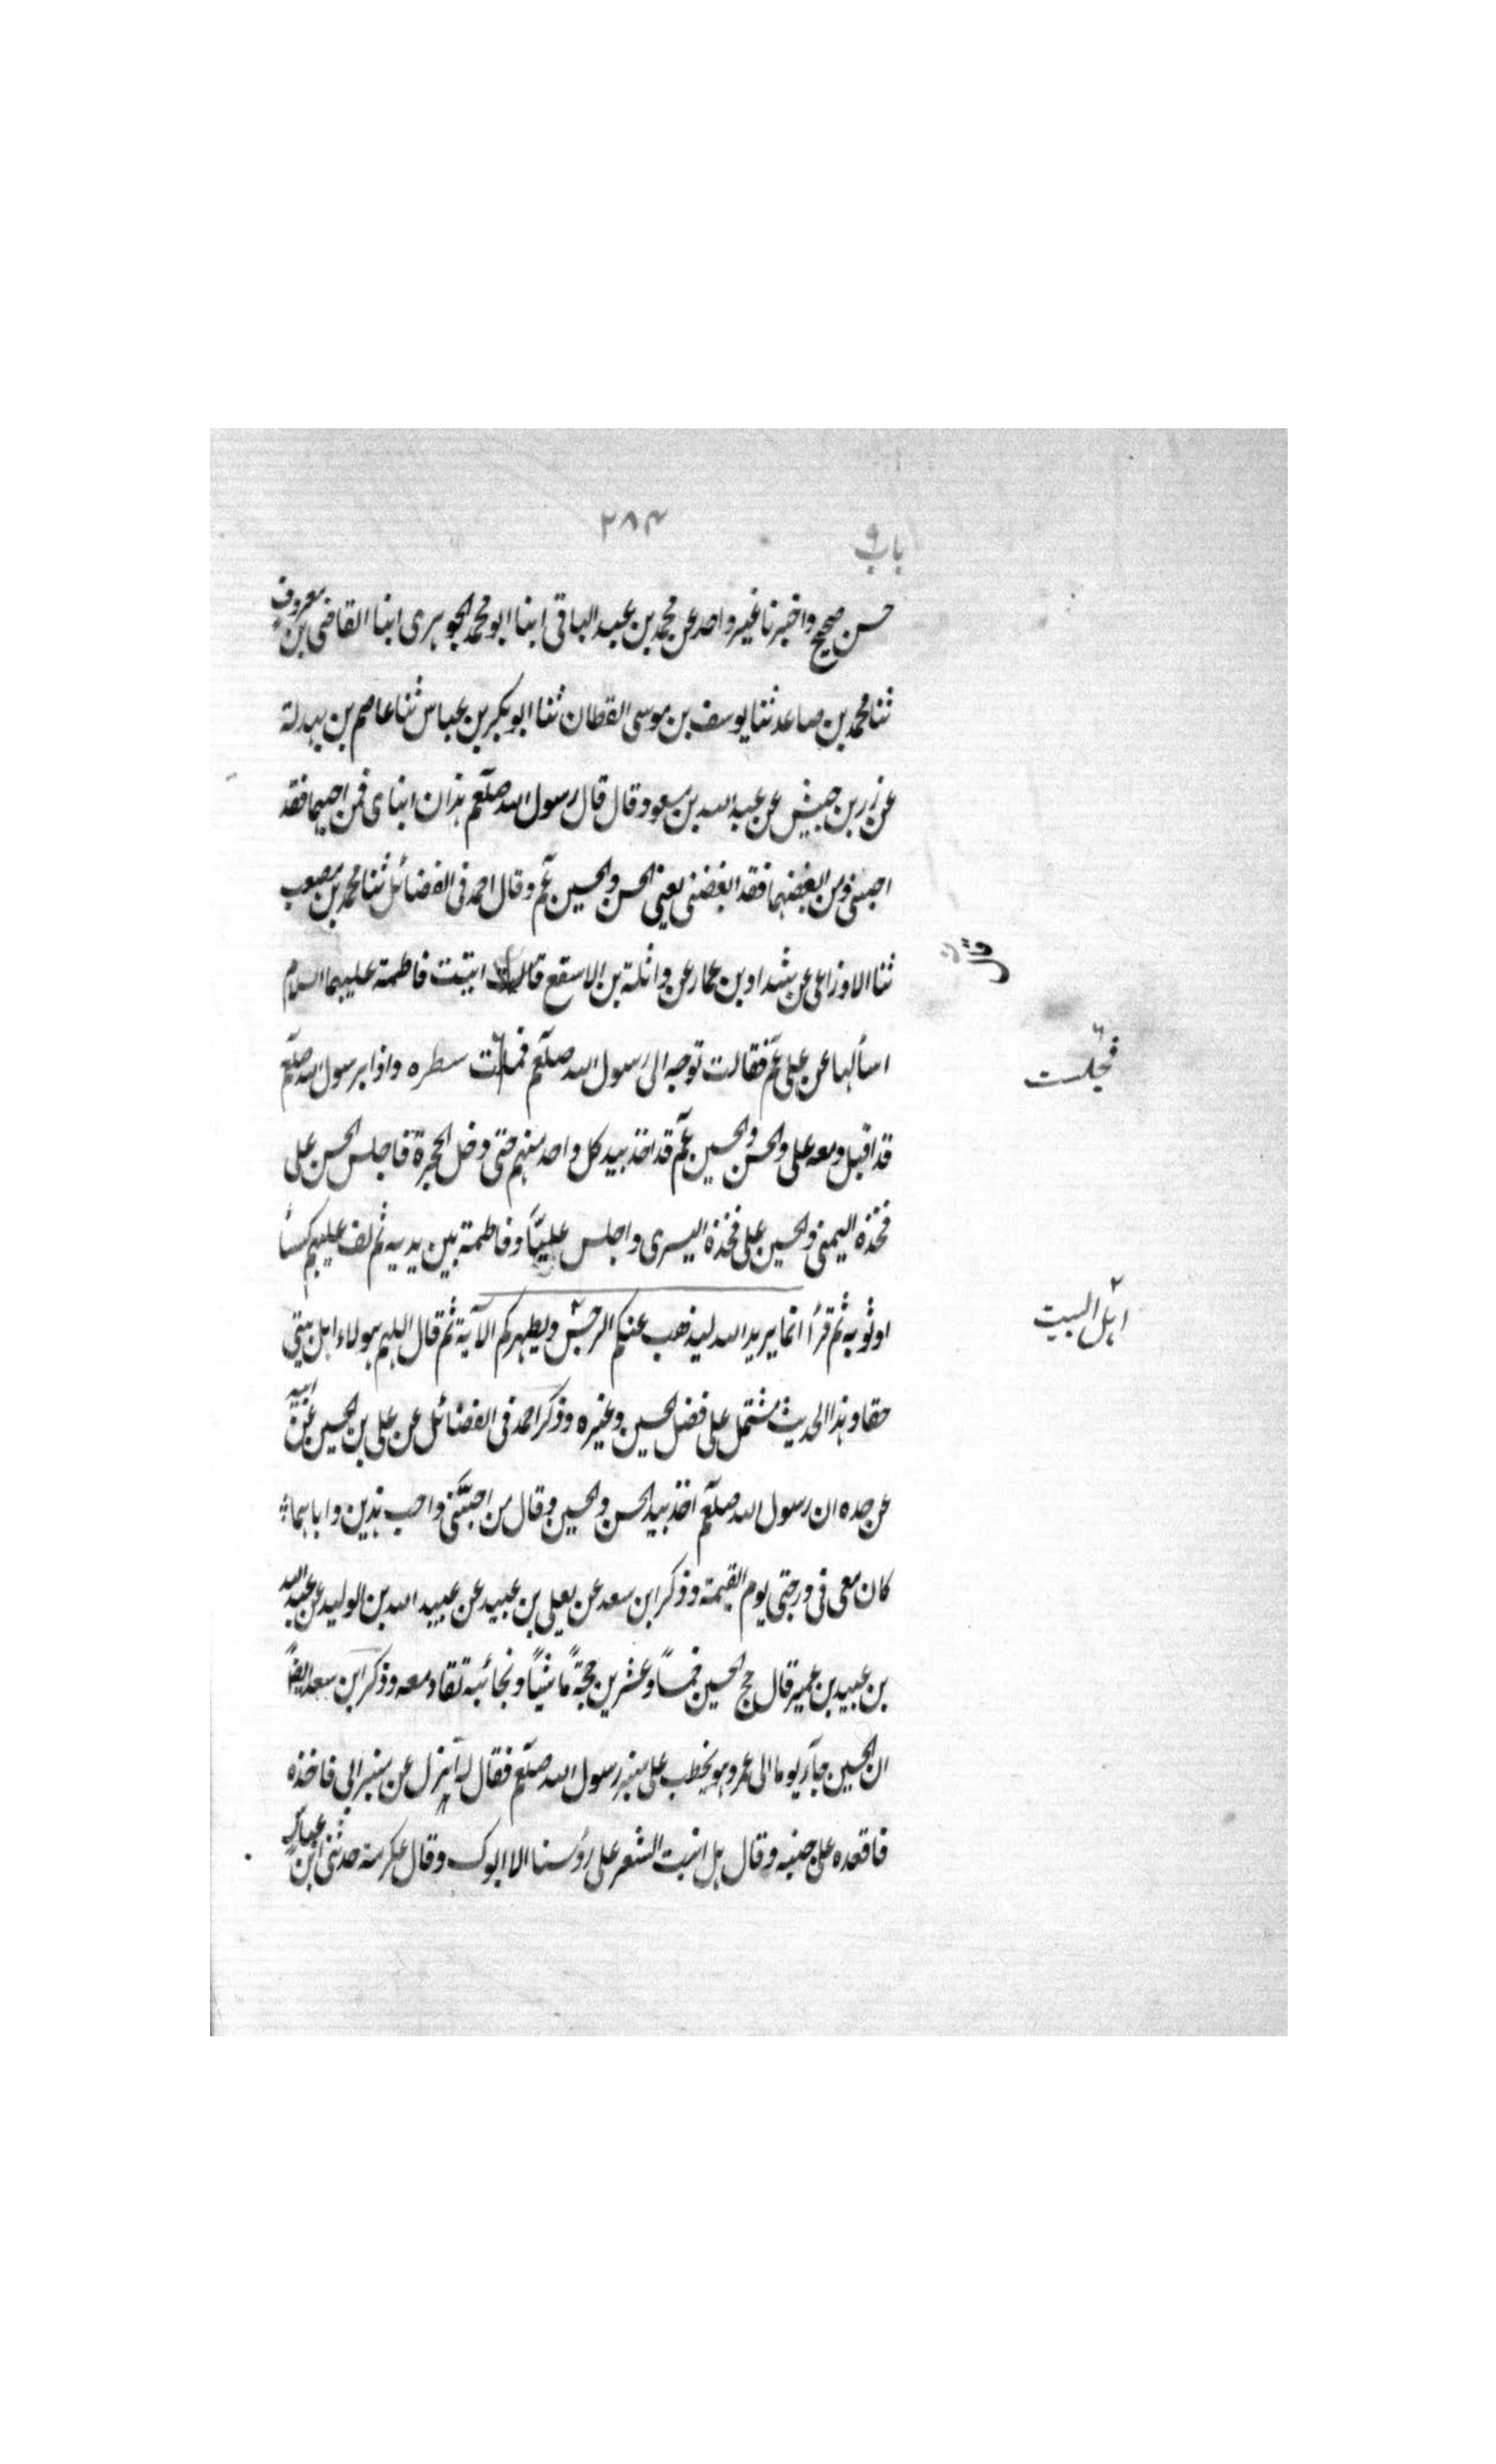 باب ٩
٢٨٤
حسن صحيح واخبرنا غير واحد عن محمد بن عبد الباقى ابنا ابو محمد الجوهرى ابنا القاضى بن معروف
ثنا محمد بن صاعد ثنا يوسف بن موسى القطان ثنا ابو بكر بن عباس ثنا عاصم بن بهدلة
عن زر بن حبيش عن عبد الله بن مسعود قال قال رسول الله صلعم هذان ابناى فمن احبهما فقد
احبنى ومن ابغضهما فقد ابغضنى يعنى الحسن والحسين عم وقال احمد فى الفضائل ثنا محمد بن مصعب
ثنا الاوزاعى عن شداد بن عمار عن واثلة بن الاسقع قال اتيت فاطمة عليها السلام
اسألها عن على عم فقالت توجه الى رسول الله صلعم سطره واذا برسول الله صلعم
فجلست
قد اقبل ومعه على والحسن والحسين عم قد اخذ بيد كل واحد منهم حتى دخل الحجرة فاجلس الحسن على
فخذه اليمنى والحسين على فخذه اليسرى واجلس عليًّا وفاطمة بين يديه ثم لف عليهم كسأ
او ثوبه ثم قرأ انما يريد الله ليذهب عنكم الرجس ويطهركم الآية ثم قال اللهم هولاء اهل بيتى
اهل البيت
حقا وهذا الحديث مشتمل على فضل الحسين وغيره وذكر احمد فى الفضائل عن على بن الحسين عن ابيه
عن جده ان رسول الله صلعم اخذ بيد الحسن والحسين وقال من احبنى واحب هذين واباهما
كان معى فى درجتى يوم القيمة وذكر ابن سعد عن يعلى بن عبيد عن عبيد الله بن الوليد عن عبد الله
بن عبيد بن عمير قال حج الحسين خمسًا وعشرين حجةً ماشيًا ونجائبه تقاد معه وذكر ابن سعد ايضًا
ان الحسين جآء يوما الى عمر وهو يخطب على منبر رسول الله صلعم فقال له انزل عن منبر ابى فاخذه
فاقعده على جنبه وقال هل انبت الشعر على رؤسنا الا ابوك وقال عكرمة حدثنى ابن عباس